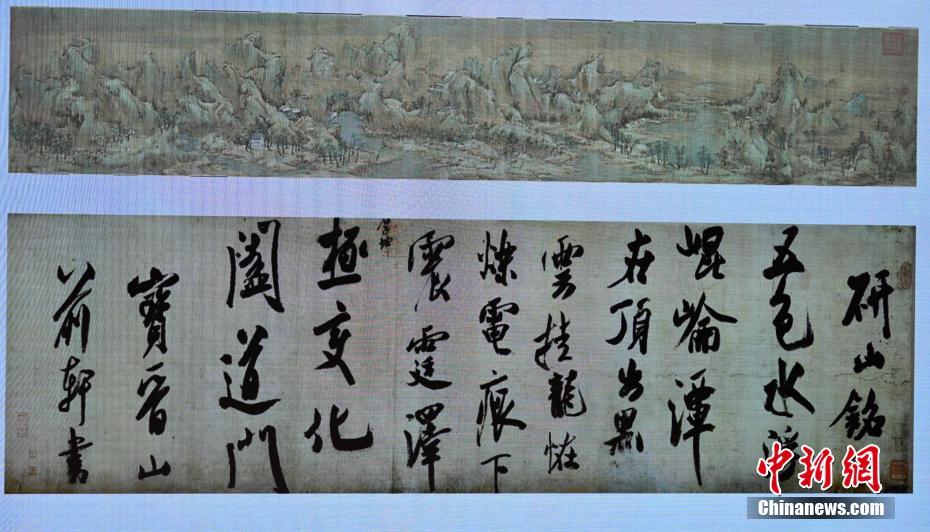 研山銘
五色水浮
崐崘潭
在頂出黑
雲挂龍恠
爍電痕下
震霆澤
厚坤
極變化
闔道門
寶晉山
前軒書
中新網
Chinanews.com